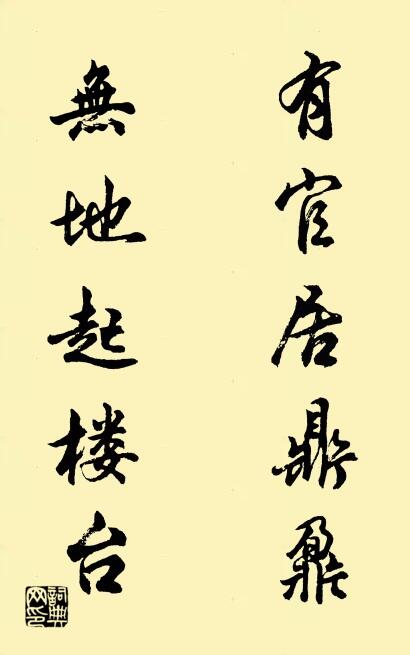 有官居鼎鼐
無地起楼台
詞典网印